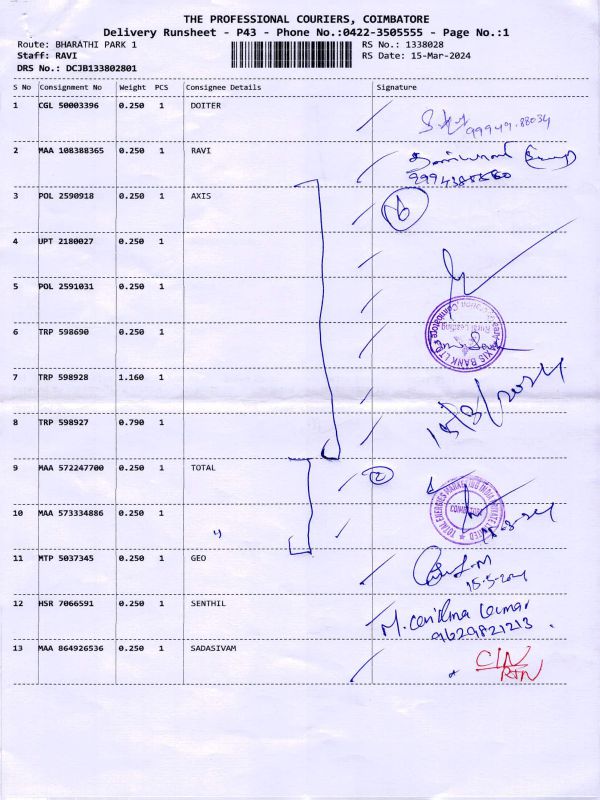 THE PROFESSIONAL COURIERS, COIMBATORE
Delivery Runsheet - P43 - Phone No.:0422-3505555 - Page No.:1
Route: BHARATHI PARK 1 RS No.: 1338028
Staff: RAVI RS Date: 15-Mar-2024
DRS No.: DCJB133802801
S No Consignment No Weight PCS Consignee Details Signature
1 CGL 50003396 0.250 1 DOITER
99949.88034
2 MAA 108388365 0.250 1 RAVI
3 POL 2590918 0.250 1 AXIS
6
4 UPT 2180027 0.250 1
5 POL 2591031 0.250 1
6 TRP 598690 0.250 1
AXIS BANK LTD
7 TRP 598928 1.160 1
15/3/2024
8 TRP 598927 0.790 1
9 MAA 572247700 0.250 1 TOTAL
2
10 MAA 573334886 0.250 1 "
TOTAL ENERGIES MARKETING INDIA PRIVATE LIMITED
COIMBATORE
11 MTP 5037345 0.250 1 GEO
12 HSR 7066591 0.250 1 SENTHIL
9629821213.
13 MAA 864926536 0.250 1 SADASIVAM
RTN